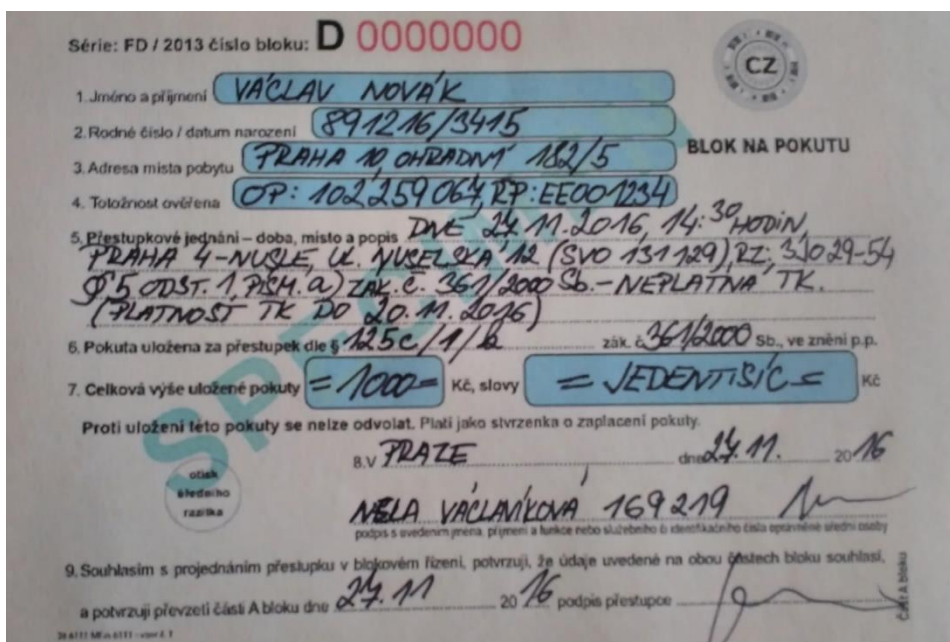 Série: FD / 2013 číslo bloku: D 0000000
CZ
1. Jméno a příjmení VÁCLAV NOVÁK
2. Rodné číslo / datum narození 891216/3415
BLOK NA POKUTU
3. Adresa místa pobytu PRAHA 10, OHRADNÍ 182/5
4. Totožnost ověřena OP: 102259067, ŘP: EE001234
5. Přestupkové jednání – doba, místo a popis DNE 27.11.2016, 14:30 HODIN,
PRAHA 4-NUSLE, UL. NUSELSKÁ 12 (SVO 131129), RZ: 3J0 29-54
§ 5 ODST. 1, PÍSM. a) ZÁK. Č. 361/2000 Sb. - NEPLATNÁ TK.
(PLATNOST TK DO 20.11.2016)
6. Pokuta uložena za přestupek dle § 125c/1/k zák. č. 361/2000 Sb., ve znění p.p.
7. Celková výše uložené pokuty =1000= Kč, slovy = JEDENTISÍC = Kč
Proti uložení této pokuty se nelze odvolat. Platí jako stvrzenka o zaplacení pokuty.
8. V PRAZE dne 27.11. 2016
otisk
úředního
razítka
NELA VÁCLAVÍKOVÁ 169219
podpis s uvedením jména, příjmení a funkce nebo služebního či identifikačního čísla oprávněné úřední osoby
9. Souhlasím s projednáním přestupku v blokovém řízení, potvrzuji, že údaje uvedené na obou částech bloku souhlasí,
a potvrzuji převzetí části A bloku dne 27.11 2016 podpis přestupce
Část A bloku
SPECIMEN